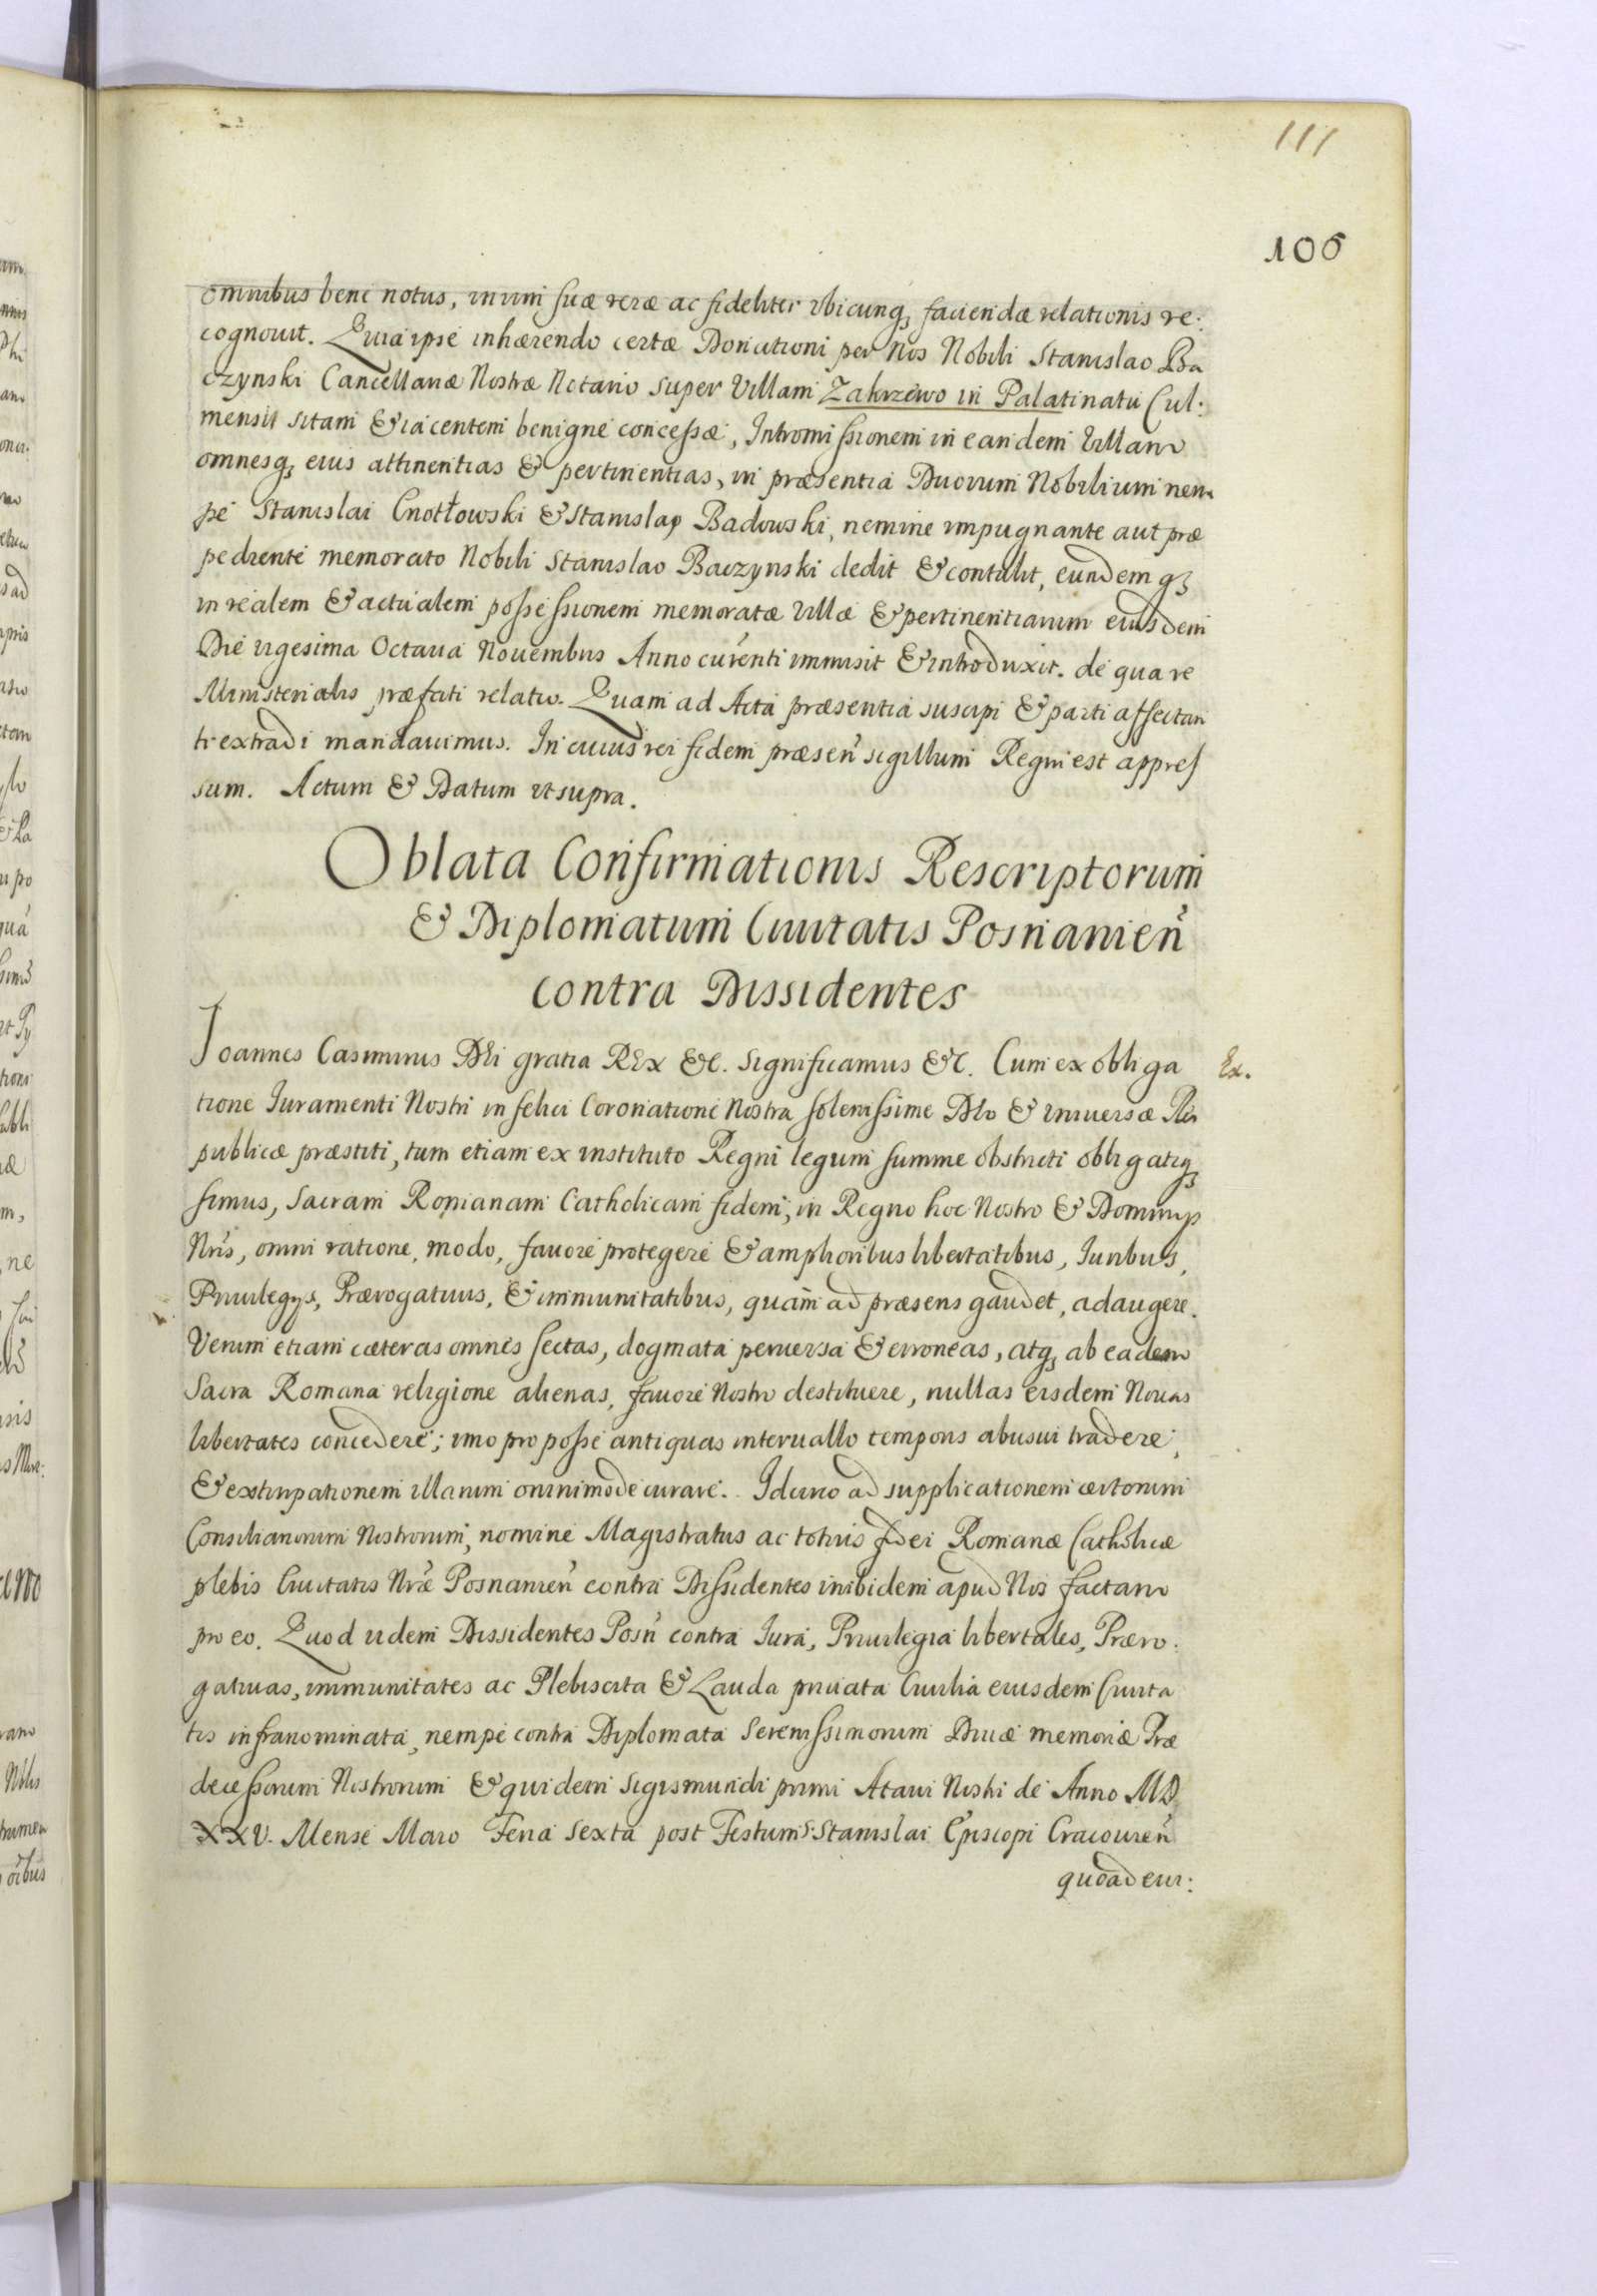 111
106
omnibus bene notus, in vim suæ veræ ac fideliter vbicunq, faciendæ relationis re:
cognouit. Quia ipse inhærendo certæ Donationi per Nos Nobili Stanislao Ba
czynski Cancellariæ Nostræ Notario super Villam Zakrzewo in Palatinatu Cul:
mensi sitam & iacentem benigne concessæ, Intromissionem in eandem Villam
omnesq, eius attinentias & pertinentias, in præsentia Duorum Nobilium nem
pe Stanislai Cnotłowski & Stanislai Badowski, nemine impugnante aut præ
pediente memorato Nobili Stanislao Baczynski dedit & contulit, eundemq,
in realem & actualem possessionem memoratæ Villæ & pertinentiarum eiusdem
Die vigesima Octaua Nouembris Anno curenti immisit & introduxit. de qua re
Ministerialis præfati relatio. Quam ad Acta præsentia suscipi & parti affectan
ti extradi mandauimus. In cuius rei fidem præsen̄ sigillum Regni est appres
sum. Actum & Datum vt supra.
Oblata Confirmationis Rescriptorum
& Diplomatum Ciuitatis Posnanien̄
contra Dissidentes
Ioannes Casimirus DEi gratia REx &c. Significamus &c. Cum ex obliga
Ex.
tione Iuramenti Nostri in felici Coronatione Nostra solenissime DEo & vniuersæ Rei
publicæ præstiti, tum etiam ex instituto Regni legum summe obstricti obligatiq,
simus, Sacram Romanam Catholicam fidem, in Regno hoc Nostro & Dominijs
Nr̄is, omni ratione, modo, fauore protegere & amplioribus libertatibus, Iuribus,
Priuilegijs, Prærogatiuis, & immunitatibus, quam ad præsens gaudet, adaugere.
Verum etiam cæteras omnes sectas, dogmata peruersa & erroneas, atq, ab eadem
Sacra Romana religione alienas, fauore Nostro destituere, nullas eisdem Nouas
libertates concedere; imo pro posse antiquas interuallo temporis abusui tradere,
& extirpationem illarum omnimode curare. Idcirco ad supplicationem certorum
Consiliariorum Nostrorum, nomine Magistratus ac totius fidei Romanæ Catholicæ
plebis Ciuitatis Nr̄æ Posnanien̄ contra Dissidentes inibidem apud Nos factam
pro eo. Quod iidem Dissidentes Posn̄ contra Iura, Priuilegia libertates, Præro:
gatiuas, immunitates ac Plebiscita & Lauda priuata Ciuilia eiusdem Ciuita
tis infranominata, nempe contra Diplomata Serenissimorum Diuæ memoriæ Præ
decessorum Nostrorum & quidem Sigismundi primi Ataui Nostri de Anno MD
XXV. Mense Maio Feria Sexta post Festum S. Stanislai Episcopi Cracouien̄
quoad eui: